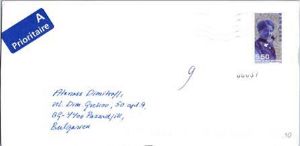 A
Prioritaire
550
9
Atanass Dimitroff,
ul. Dim. Grekov, 50 apt 9
BG-4400 Pazardjik,
Bulgarien
10